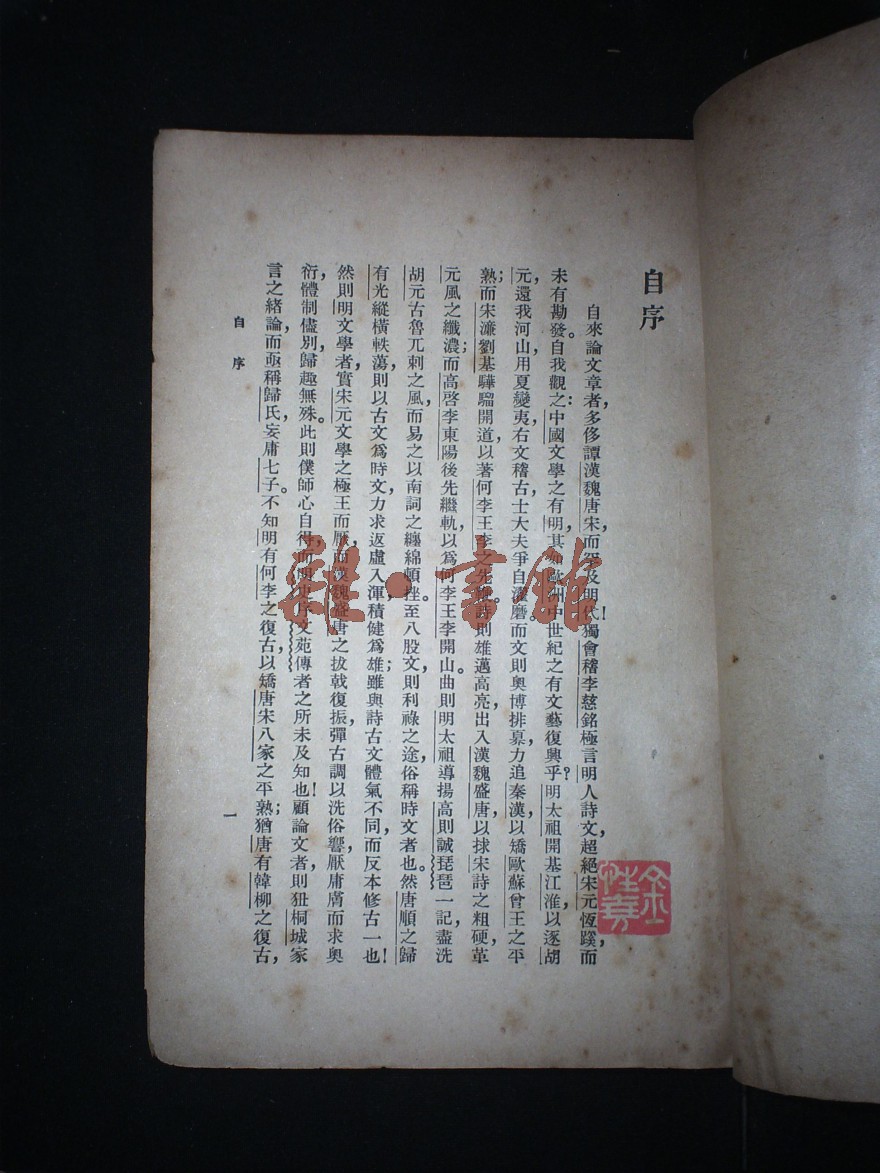 自序
自來論文章者，多侈譚漢魏唐宋，而罕及明代！獨會稽李慈銘極言明人詩文，超絕宋元恆蹊，而
未有勘發。自我觀之：中國文學之有明，其如歐洲中世紀之有文藝復興乎？明太祖開基江淮，以逐胡
元，還我河山，用夏變夷，右文稽古，士大夫爭自濯磨。而文則奧博排奡，力追秦漢，以矯歐蘇曾王之平
熟；而宋濂劉基驊騮開道，以著何李王李之先鞭。詩則雄邁高亮，出入漢魏盛唐，以捄宋詩之粗硬，革
元風之纖濃；而高啓李東陽後先繼軌，以爲何李王李開山。曲則明太祖導揚高則誠琵琶一記，盡洗
胡元古魯兀剌之風，而易之以南詞之纏綿頓挫。至八股文則利祿之途，俗稱時文者也。然唐順之歸
有光縱橫軼蕩，則以古文爲時文，力求返虛入渾，積健爲雄；雖與詩古文體氣不同，而反本修古一也！
然則明文學者，實宋元文學之極王而厭，而漢魏盛唐之拔戟復振，彈古調以洗俗響，厭庸膚而求奧
衍，體制儘別，歸趣無殊。此則僕師心自得，而明史序文苑傳者之所未及知也！顧論文者則狃桐城家
言之緒論，而亟稱歸氏，妄庸七子。不知明有何李之復古，以矯唐宋八家之平熟；猶唐有韓柳之復古，
自序
一
雜·書館